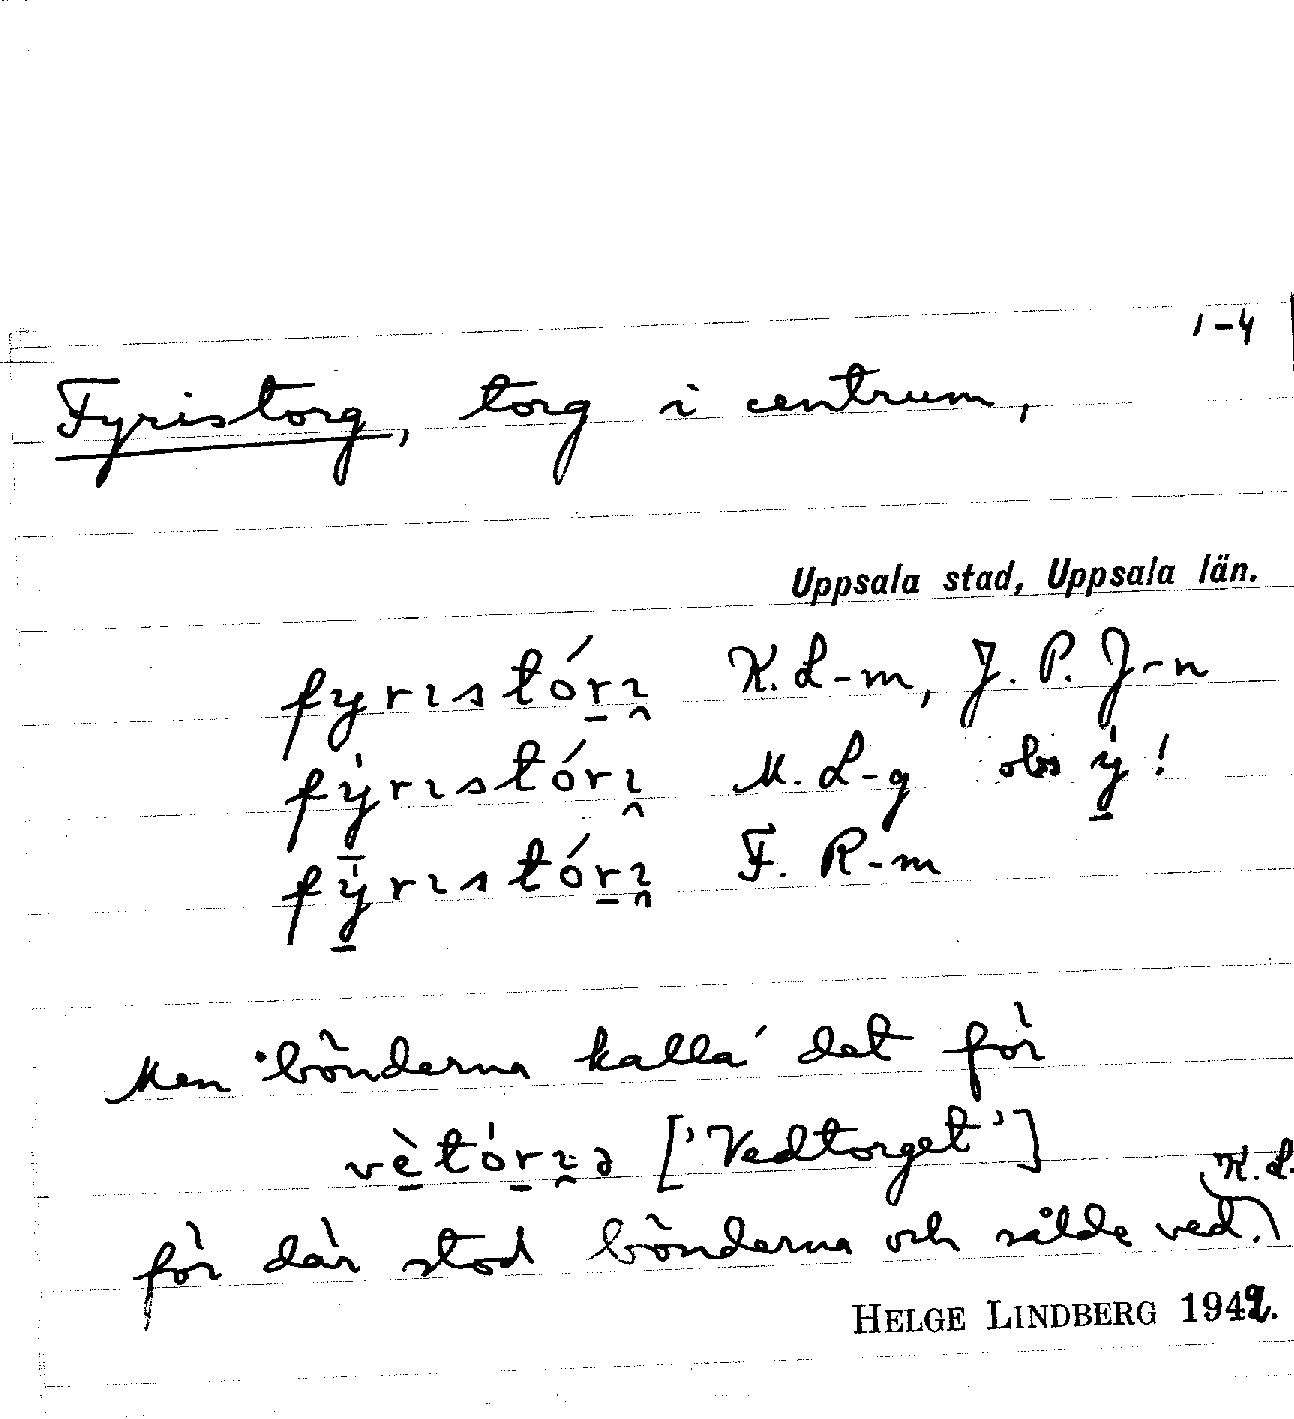 1-4
Fyristorg, torg i centrum,
Uppsala stad, Uppsala län.
fyrıstó̱rı̯ K. L-m, J. P. J-n
fý̱rıstórı̯ M. L-g obs ý̱!
fý̱rıstóṟı̯ F. R-m
Men 'bönderna kalla' det för
vè̱tóṟı̯ə ['Vedtorget']
K. L.
för där stod bönderna och sålde ved.
HELGE LINDBERG 1949.